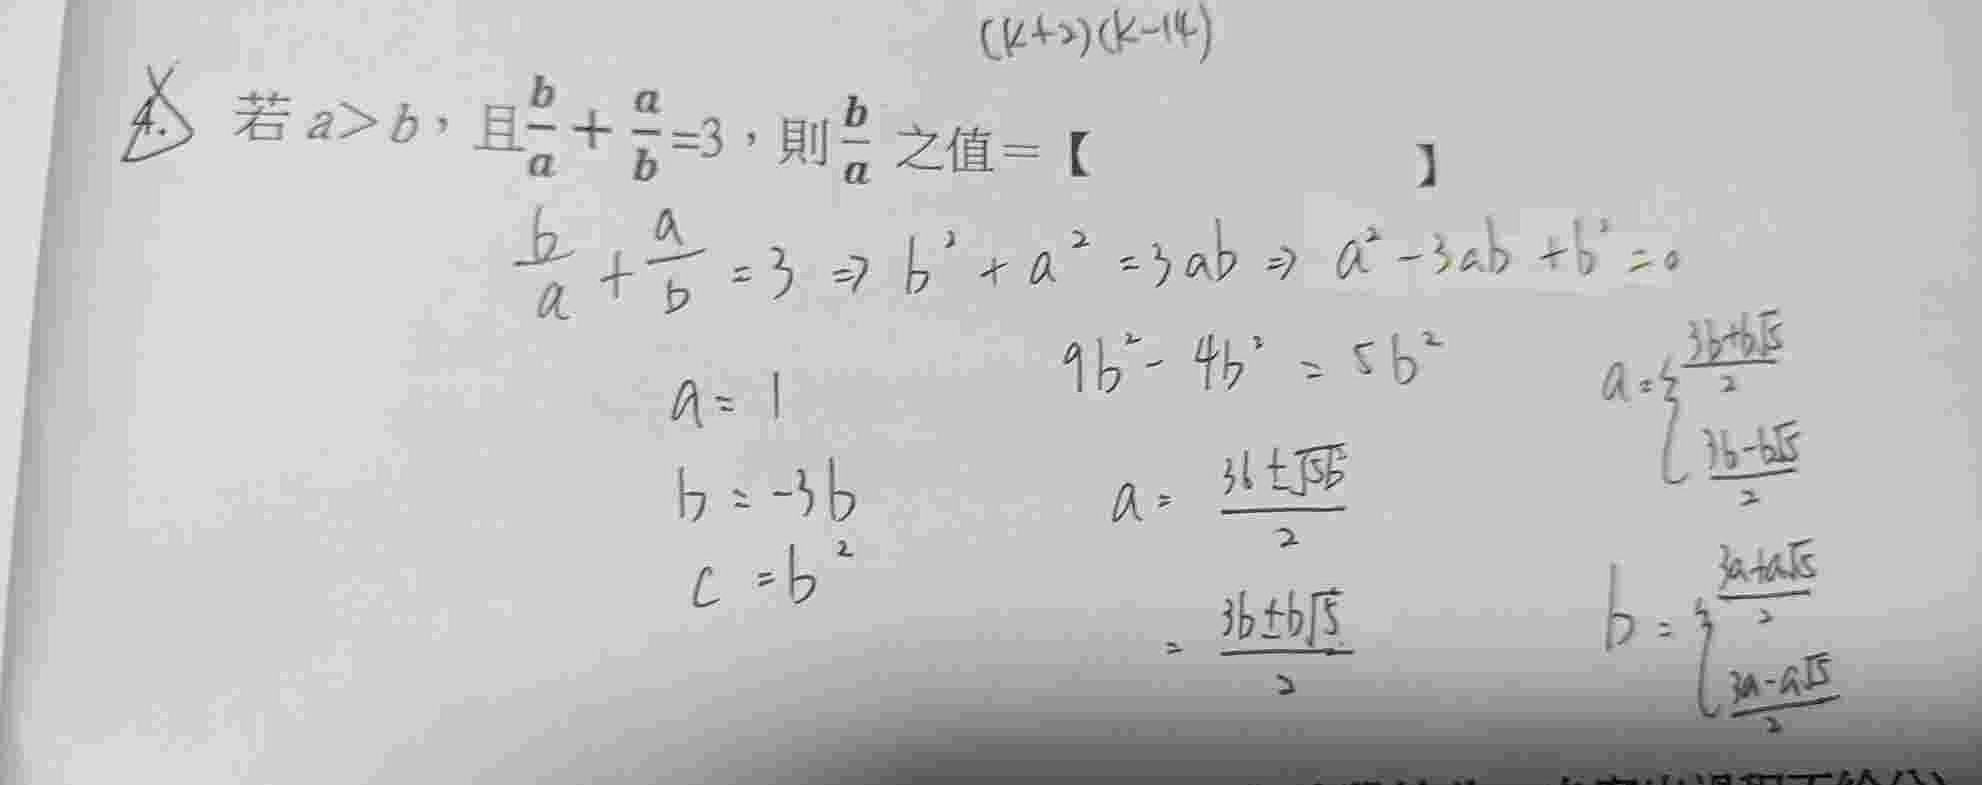 (k+2)(k-14)
4. 若 a > b，且 b/a + a/b =3，則 b/a 之值＝【 】
b/a + a/b = 3 ⇒ b² + a² = 3ab ⇒ a² - 3ab + b² = 0
a = 1
b = -3b
c = b²
9b² - 4b² = 5b²
a = (3b ± √5b²)/2
= (3b ± b√5)/2
a = { (3b+b√5)/2
(3b-b√5)/2
b = { (3a+a√5)/2
(3a-a√5)/2